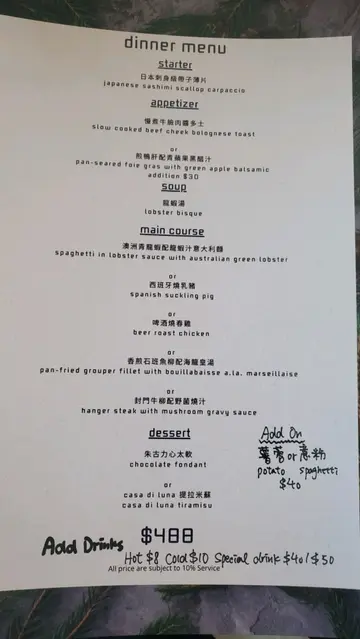 dinner menu
starter
日本刺身級帶子薄片
japanese sashimi scallop carpaccio
appetizer
慢煮牛臉肉醬多士
slow cooked beef cheek bolognese toast
or
煎鴨肝配青蘋果黑醋汁
pan-seared foie gras with green apple balsamic
addition $30
soup
龍蝦湯
lobster bisque
main course
澳洲青龍蝦配龍蝦汁意大利麵
spaghetti in lobster sauce with australian green lobster
or
西班牙燒乳豬
spanish suckling pig
or
啤酒燒春雞
beer roast chicken
or
香煎石斑魚柳配海龍皇湯
pan-fried grouper fillet with bouillabaisse a.la. marseillaise
or
封門牛柳配野菌燒汁
hanger steak with mushroom gravy sauce
dessert
朱古力心太軟
chocolate fondant
or
casa di luna 提拉米蘇
casa di luna tiramisu
Add On
薯蓉 or 意粉
potato spaghetti
$40
$488
Add Drinks
Hot $8 Cold $10 Special drink $40/$50
All price are subject to 10% Service